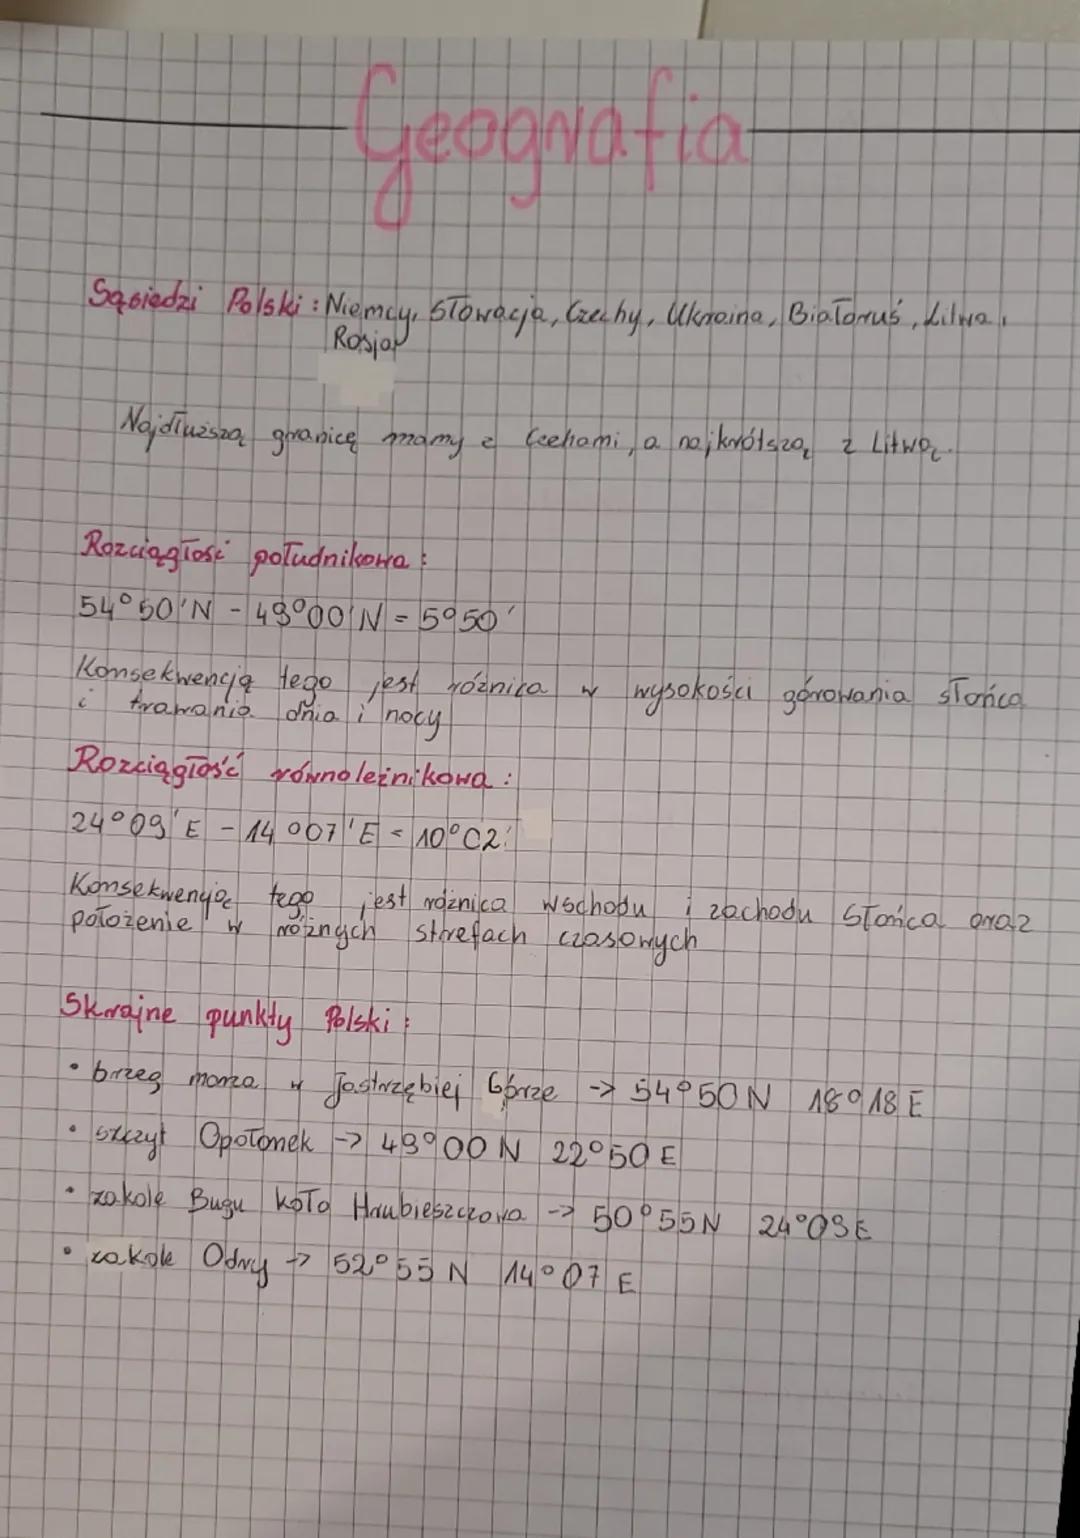 Geografia
Sąsiedzi Polski : Niemcy, Słowacja, Czechy, Ukraina, Białoruś, Litwa,
Rosja
Najdłuższą granicę mamy z Czechami, a najkrótszą z Litwą.
Rozciągłość południkowa :
54°50'N - 49°00'N = 5°50'
Konsekwencją tego jest różnica w wysokości górowania słońca
i trawania dnia i nocy
Rozciągłość równoleżnikowa :
24°09'E - 14°07'E = 10°02'
Konsekwencją tego jest różnica wschodu i zachodu Słońca oraz
położenie w różnych strefach czasowych
Skrajne punkty Polski :
• brzeg morza w Jastrzębiej Górze -> 54°50 N 18°18 E
• szczyt Opołonek -> 49°00 N 22°50 E
• zakole Bugu koło Hrubieszczowa -> 50°55 N 24°09 E
• zakole Odry -> 52°55 N 14°07 E